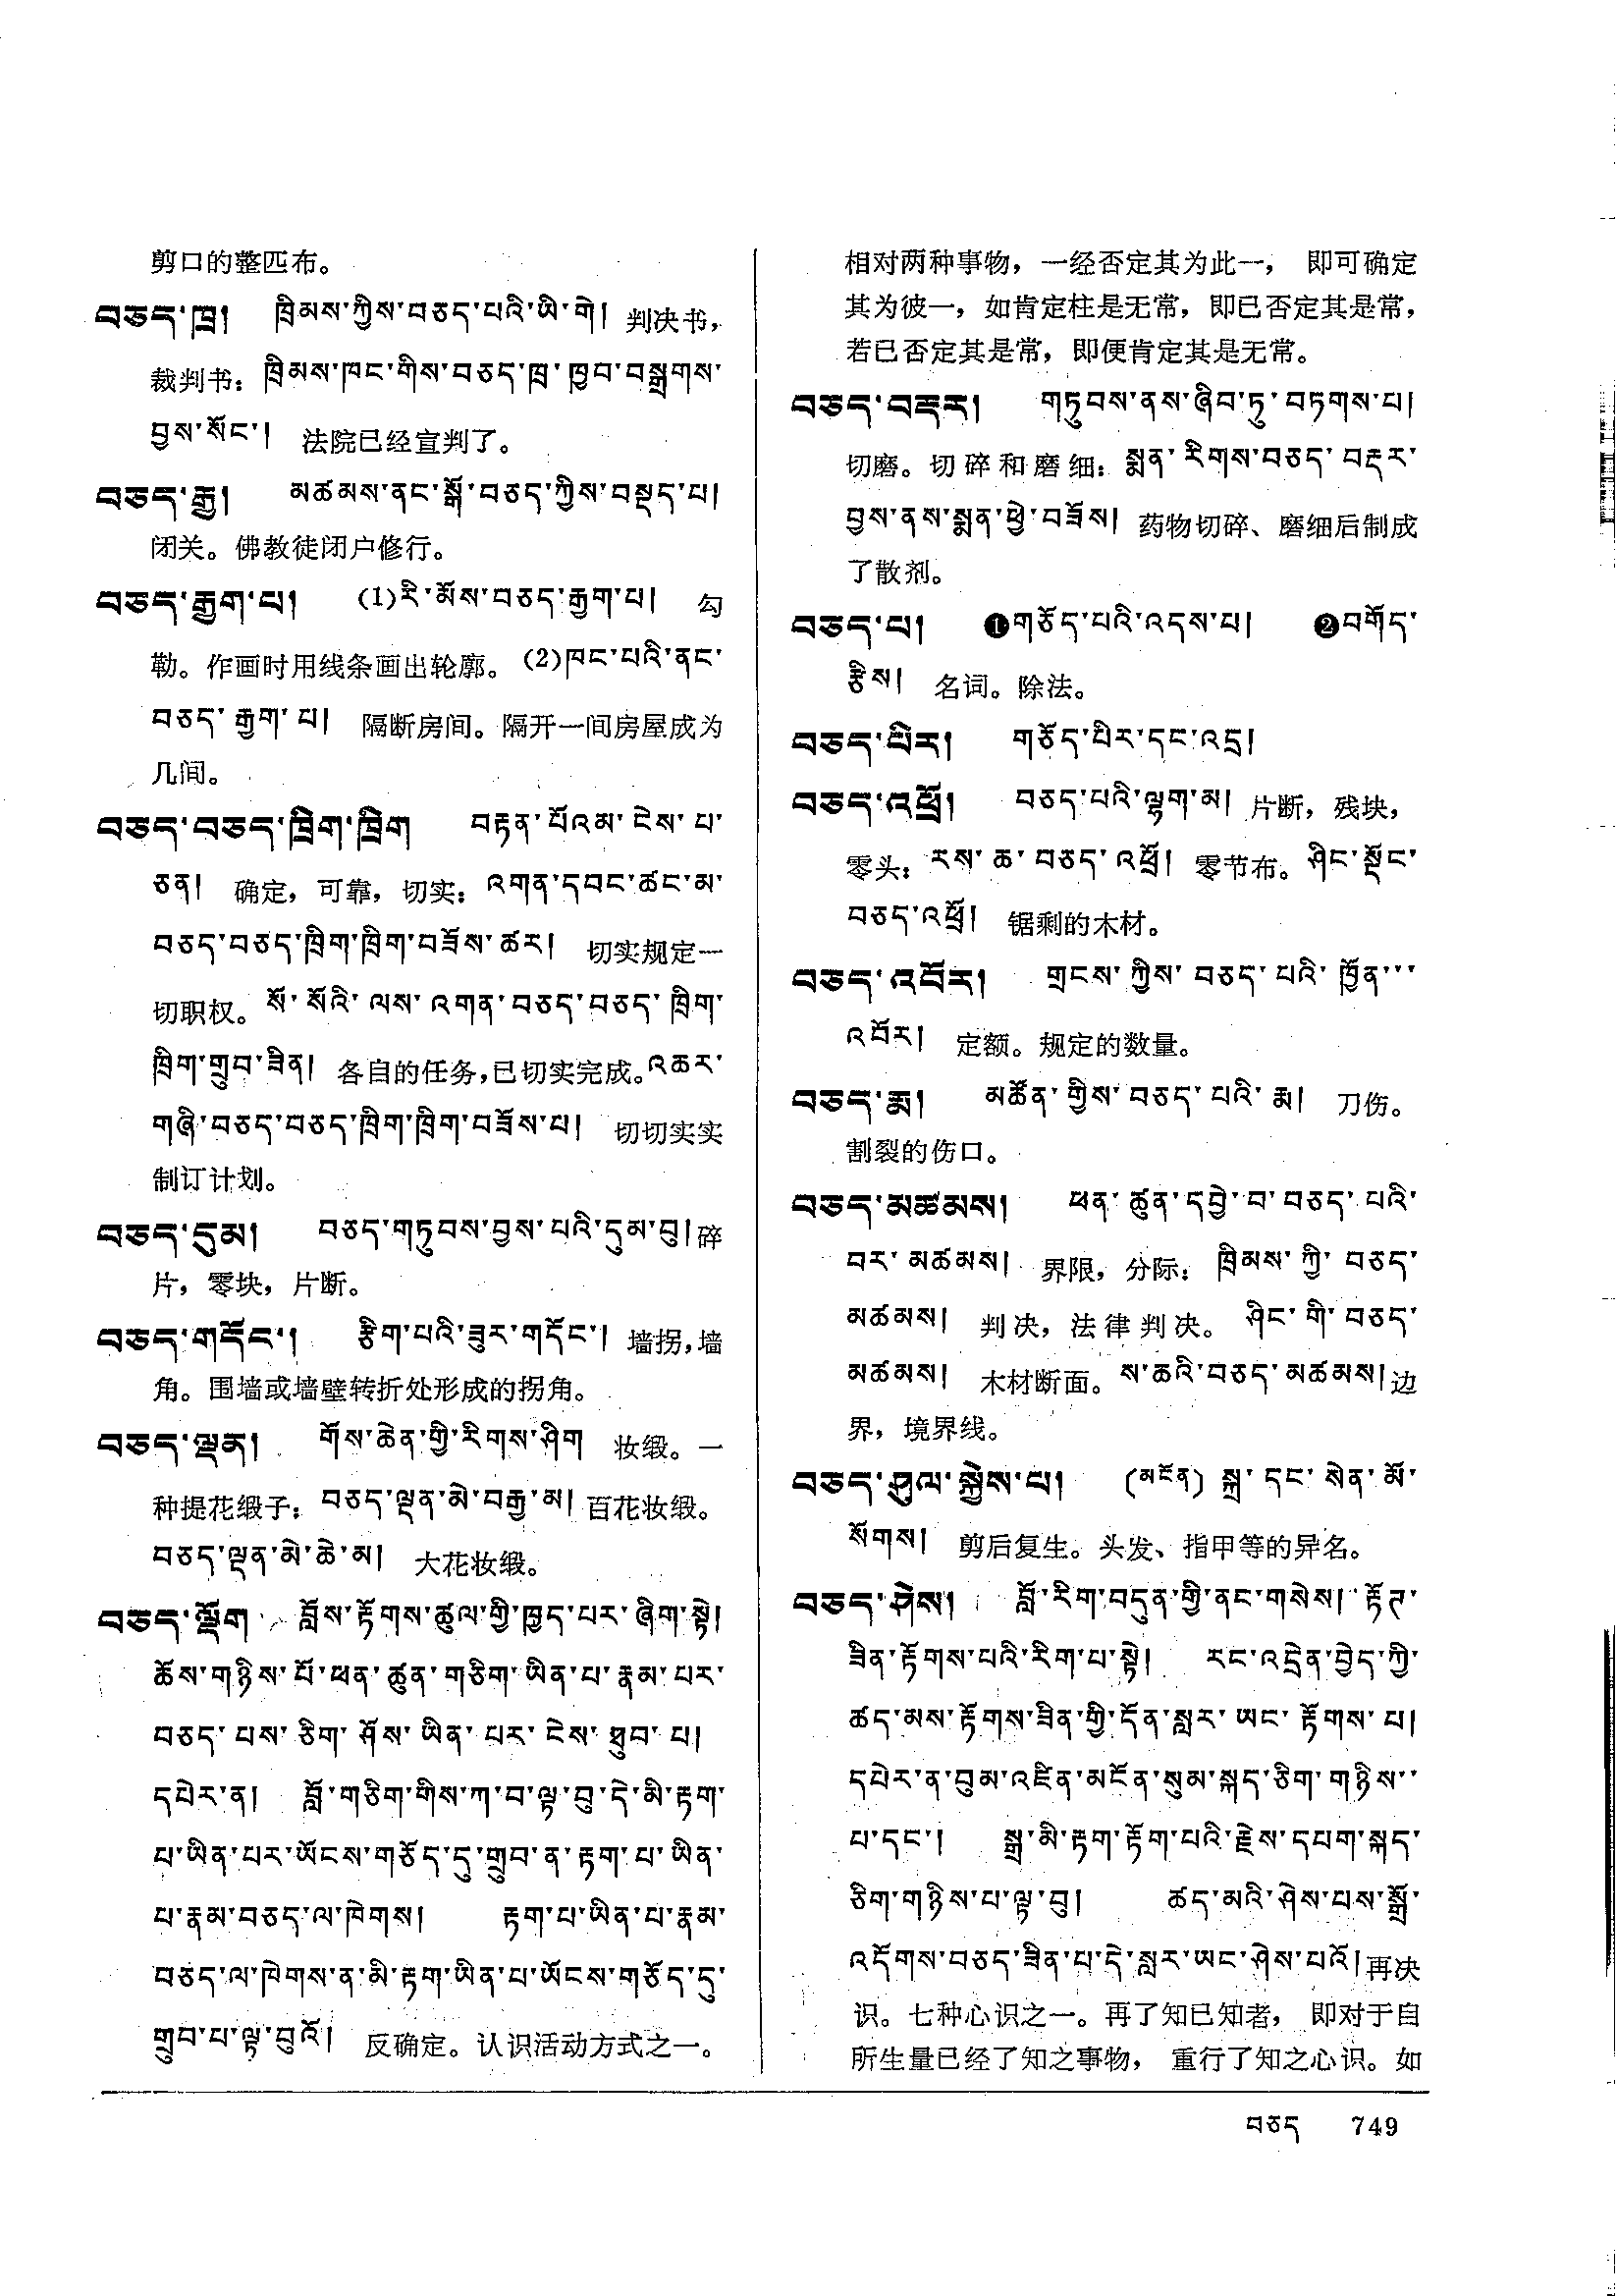 剪口的整匹布。
བཅད་ཁྲ། ཁྲིམས་ཀྱིས་བཅད་པའི་ཡི་གེ། 判决书，
裁判书：ཁྲིམས་ཁང་གིས་བཅད་ཁྲ་ཁྱབ་བསྒྲགས་
བྱས་སོང་། 法院已经宣判了。
བཅད་རྒྱ། མཚམས་ནང་སྒོ་བཅད་ཀྱིས་བསྡད་པ།
闭关。佛教徒闭户修行。
བཅད་རྒྱག་པ། (1)རི་མོས་བཅད་རྒྱག་པ། 勾
勒。作画时用线条画出轮廓。(2)ཁང་པའི་ནང་
བཅད་རྒྱག་པ། 隔断房间。隔开一间房屋成为
几间。
བཅད་བཅད་ཁྲིག་ཁྲིག བརྟན་པོའམ་ངེས་པ་
ཅན། 确定，可靠，切实：འགན་དབང་ཚང་མ་
བཅད་བཅད་ཁྲིག་ཁྲིག་བཟོས་ཚར། 切实规定一
切职权。སོ་སོའི་ལས་འགན་བཅད་བཅད་ཁྲིག་
ཁྲིག་གྲུབ་ཟིན། 各自的任务，已切实完成。འཆར་
གཞི་བཅད་བཅད་ཁྲིག་ཁྲིག་བཟོས་པ། 切切实实
制订计划。
བཅད་དུམ། བཅད་གཏུབས་བྱས་པའི་དུམ་བུ། 碎
片，零块，片断。
བཅད་གདོང་། རྩིག་པའི་ཟུར་གདོང་། 墙拐，墙
角。围墙或墙壁转折处形成的拐角。
བཅད་ལྡན། གོས་ཆེན་གྱི་རིགས་ཤིག 妆缎。一
种提花缎子：བཅད་ལྡན་མེ་བརྒྱ་མ། 百花妆缎。
བཅད་ལྡན་མེ་ཆེ་མ། 大花妆缎。
བཅད་ལྡོག བློས་རྟོགས་ཚུལ་གྱི་ཁྱད་པར་ཞིག་སྟེ།
ཆོས་གཉིས་པོ་ཕན་ཚུན་གཅིག་ཡིན་པ་རྣམ་པར་
བཅད་པས་ཅིག་ཤོས་ཡིན་པར་ངེས་ཐུབ་པ།
དཔེར་ན། བློ་གཅིག་གིས་ཀ་བ་ལྟ་བུ་དེ་མི་རྟག་
པ་ཡིན་པར་ཡོངས་གཅོད་དུ་གྲུབ་ན་རྟག་པ་ཡིན་
པ་རྣམ་བཅད་ལ་ཁེགས། རྟག་པ་ཡིན་པ་རྣམ་
བཅད་ལ་ཁེགས་ན་མི་རྟག་ཡིན་པ་ཡོངས་གཅོད་དུ་
གྲུབ་པ་ལྟ་བུའོ། 反确定。认识活动方式之一。
相对两种事物，一经否定其为此一， 即可确定
其为彼一，如肯定柱是无常，即已否定其是常，
若已否定其是常，即便肯定其是无常。
བཅད་བརྡར། གཏུབས་ནས་ཞིབ་ཏུ་བཏགས་པ།
切磨。切碎和磨细：སྨན་རིགས་བཅད་བརྡར་
བྱས་ནས་སྨན་ཕྱེ་བཟོས། 药物切碎、磨细后制成
了散剂。
བཅད་པ། ❶གཅོད་པའི་འདས་པ། ❷བགོད་
རྩིས། 名词。除法。
བཅད་པིར། གཅོད་པིར་དང་འདྲ།
བཅད་འཕྲོ། བཅད་པའི་ལྷག་མ། 片断，残块，
零头：རས་ཆ་བཅད་འཕྲོ། 零节布。ཤིང་སྡོང་
བཅད་འཕྲོ། 锯剩的木材。
བཅད་འབོར། གྲངས་ཀྱིས་བཅད་པའི་ཁྱོན་་་
འབོར། 定额。规定的数量。
བཅད་རྨ། མཚོན་གྱིས་བཅད་པའི་རྨ། 刀伤。
割裂的伤口。
བཅད་མཚམས། ཕན་ཚུན་དབྱེ་བ་བཅད་པའི་
བར་མཚམས། 界限，分际：ཁྲིམས་ཀྱི་བཅད་
མཚམས། 判决，法律判决。ཤིང་གི་བཅད་
མཚམས། 木材断面。ས་ཆའི་བཅད་མཚམས། 边
界，境界线。
བཅད་ཤུལ་སྐྱེས་པ། (མངོན) སྐྲ་དང་སེན་མོ་
སོགས། 剪后复生。头发、指甲等的异名。
བཅད་ཤེས། བློ་རིག་བདུན་གྱི་ནང་གསེས། རྟོཊ་
ཟིན་རྟོགས་པའི་རིག་པ་སྟེ། རང་འདྲེན་བྱེད་ཀྱི་
ཚད་མས་རྟོགས་ཟིན་གྱི་དོན་སླར་ཡང་རྟོགས་པ།
དཔེར་ན་བུམ་འཛིན་མངོན་སུམ་སྐད་ཅིག་གཉིས་་
པ་དང་། སྒྲ་མི་རྟག་རྟོག་པའི་རྗེས་དཔག་སྐད་
ཅིག་གཉིས་པ་ལྟ་བུ། ཚད་མའི་ཤེས་པས་སྒྲོ་
འདོགས་བཅད་ཟིན་པ་དེ་སླར་ཡང་ཤེས་པའོ། 再决
识。七种心识之一。再了知已知者， 即对于自
所生量已经了知之事物， 重行了知之心识。如
བཅད 749